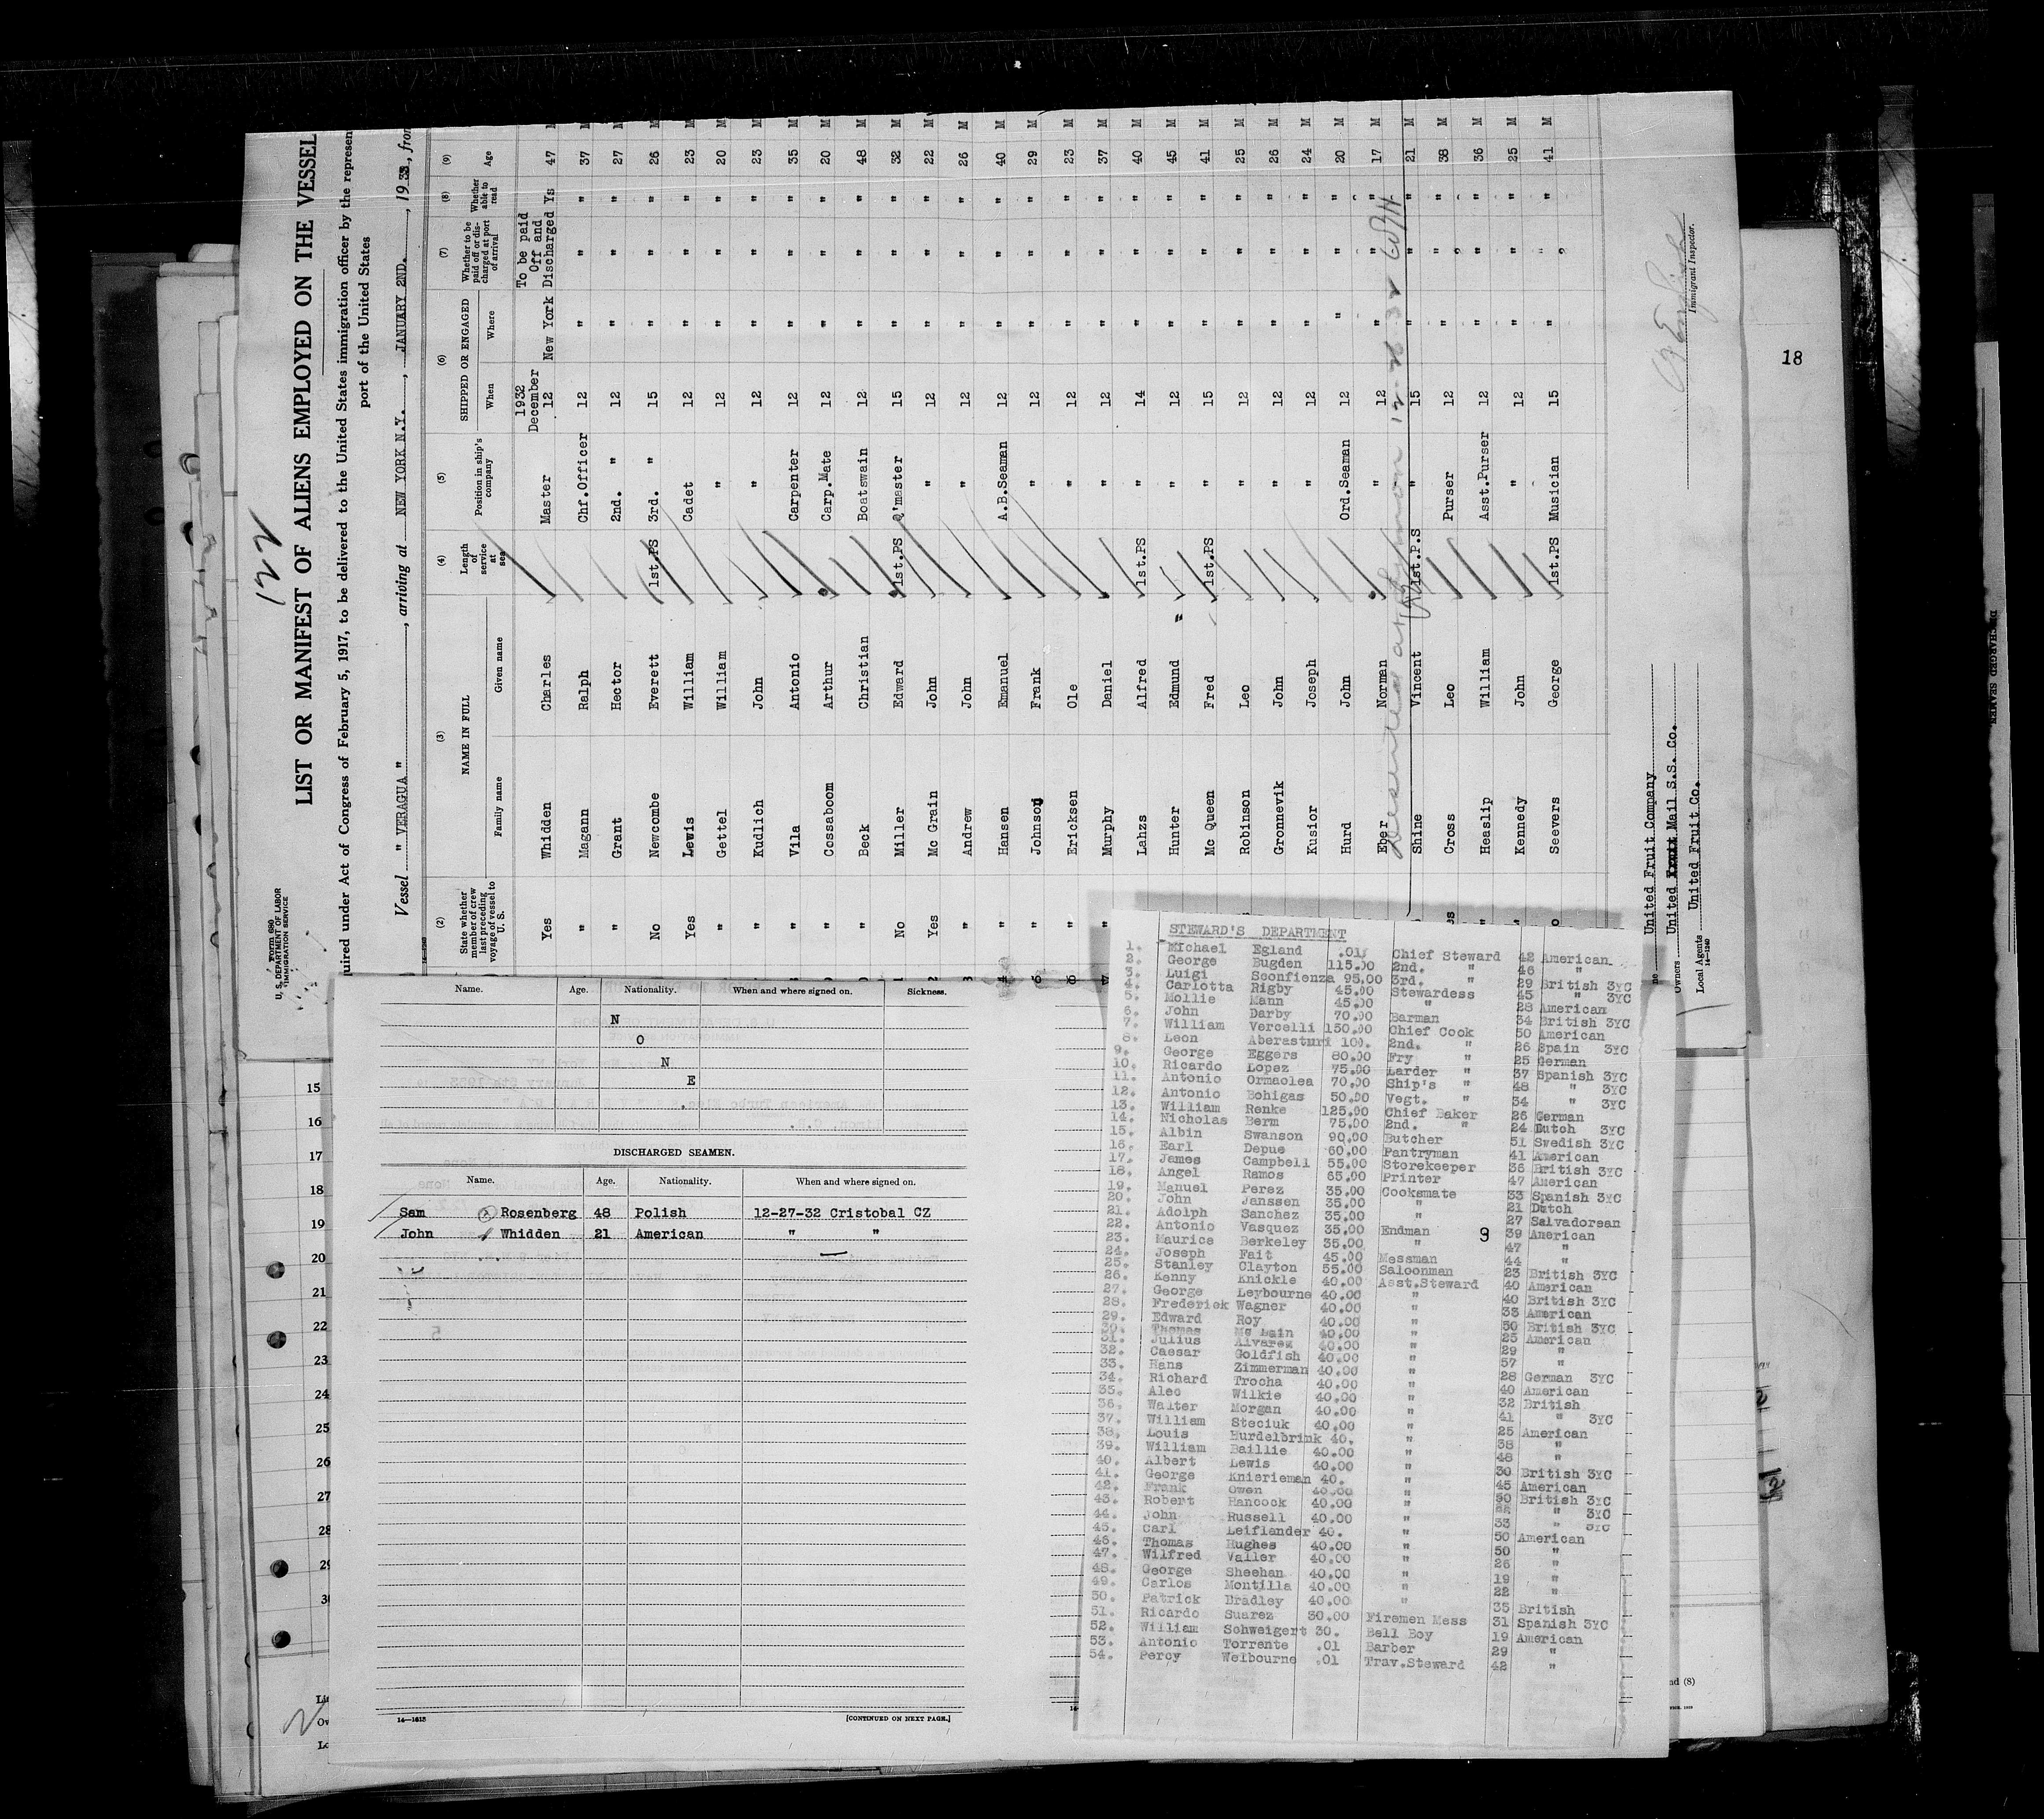 122
Form 680
U. S. DEPARTMENT OF LABOR
IMMIGRATION SERVICE
LIST OR MANIFEST OF ALIENS EMPLOYED ON THE VESSEL
quired under Act of Congress of February 5, 1917, to be delivered to the United States immigration officer by the represen
port of the United States
Vessel " VERAGUA ", arriving at NEW YORK N.Y., JANUARY 2ND., 1933, from
(2) (3) (4) (5) (6) (7) (8) (9)
State whether member of crew last preceding voyage of vessel to U. S. NAME IN FULL Family name Given name Length of service at sea Position in ship's company SHIPPED OR ENGAGED When Where Whether to be paid off or discharged at port of arrival Whether able to read Age
1932 To be paid
December Off and
Yes Whidden Charles Master 12 New York Discharged Ys 47 M
" Magann Ralph Chf.Officer 12 " " " 37 M
" Grant Hector 2nd. " 12 " " " 27 M
No Newcombe Everett 1st.PS 3rd. " 15 " " " 26 M
Yes Lewis William Cadet 12 " " " 23 M
" Gettel William " 12 " " " 20 M
" Kudlich John " 12 " " " 23 M
" Vila Antonio Carpenter 12 " " " 35 M
" Cossaboom Arthur Carp.Mate 12 " " " 20 M
" Beck Christian Boatswain 12 " " " 48 M
No Miller Edward 1st.PS Q'master 15 " " " 32 M
Yes Mc Grain John " 12 " " " 22 M
" Andrew John " 12 " " " 26 M
" Hansen Emanuel A.B.Seaman 12 " " " 40 M
" Johnson Frank " 12 " " " 29 M
" Ericksen Ole " 12 " " " 23 M
" Murphy Daniel " 12 " " " 37 M
Lahzs Alfred 1st.PS " 14 " " " 40 M
Hunter Edmund " 12 " " " 45 M
Mc Queen Fred 1st.PS " 15 " " " 41 M
Robinson Leo " 12 " " " 25 M
Gronnevik John " 12 " " " 26 M
Kusior Joseph " 12 " " " 24 M
Hurd John Ord.Seaman 12 " " " 20 M
Eber Norman " 12 " " " 17 M
Shine Vincent 1st.P.S " 15 " " " 21 M
Cross Leo Purser 12 " " " 38 M
Heaslip William Asst.Purser 12 " " " 36 M
Kennedy John " 12 " " " 25 M
Seevers George 1st.PS Musician 15 " " " 41 M
United Fruit Company
Owners United Mail S.S. Co.
Local Agents United Fruit Co.
Immigrant Inspector.
18
Name. Age. Nationality. When and where signed on. Sickness.
N
O
N
E
DISCHARGED SEAMEN.
Name. Age. Nationality. When and where signed on.
Sam Rosenberg 48 Polish 12-27-32 Cristobal CZ
John Whidden 21 American " "
14—1615
[CONTINUED ON NEXT PAGE.]
15
16
17
18
19
20
21
22
23
24
25
26
27
28
STEWARD'S DEPARTMENT
1. Michael Egland .01 Chief Steward 42 American
2. George Bugden 115.00 2nd. " 46 "
3. Luigi Sconfienza 95.00 3rd. " 29 British 3YC
4. Carlotta Rigby 45.00 Stewardess 45 " 3YC
5. Mollie Mann 45.00 " 28 American
6. John Darby 70.00 Barman 34 British 3YC
7. William Vercelli 150.00 Chief Cook 50 American
8. Leon Aberasturi 100. 2nd. " 26 Spain 3YC
9. George Eggers 80.00 Fry " 25 German
10. Ricardo Lopez 75.00 Larder " 37 Spanish 3YC
11. Antonio Ormaolea 70.00 Ship's " 48 " 3YC
12. Antonio Bohigas 50.00 Vegt. " 34 " 3YC
13. William Renke 125.00 Chief Baker 26 German
14. Nicholas Berm 75.00 2nd. " 24 Dutch 3YC
15. Albin Swanson 90.00 Butcher 51 Swedish 3YC
16. Earl Depue 60.00 Pantryman 41 American
17. James Campbell 55.00 Storekeeper 36 British 3YC
18. Angel Ramos 65.00 Printer 47 American
19. Manuel Perez 35.00 Cooksmate 33 Spanish 3YC
20. John Janssen 35.00 " 21 Dutch
21. Adolph Sanchez 35.00 " 27 Salvadorean
22. Antonio Vasquez 35.00 Endman 9 39 American
23. Maurice Berkeley 35.00 " 47 "
24. Joseph Fait 45.00 Messman 44 "
25. Stanley Clayton 55.00 Saloonman 23 British 3YC
26. Kenny Knickle 40.00 Asst.Steward 40 American
27. George Leybourne 40.00 " 40 British 3YC
28. Frederick Wagner 40.00 " 33 American
29. Edward Roy 40.00 " 50 British 3YC
30. Thomas Mc Lain 40.00 " 25 American
31. Julius Alvarez 40.00 " 29 "
32. Caesar Goldfish 40.00 " 57 "
33. Hans Zimmerman 40.00 " 28 German 3YC
34. Richard Trocha 40.00 " 40 American
35. Alec Wilkie 40.00 " 32 British
36. Walter Morgan 40.00 " 41 " 3YC
37. William Steciuk 40.00 " 25 American
38. Louis Hurdelbrink 40. " 38 "
39. William Baillie 40.00 " 48 "
40. Albert Lewis 40.00 " 30 British 3YC
41. George Knisrieman 40. " 45 American
42. Frank Owen 40.00 " 50 British 3YC
43. Robert Hancock 40.00 " " 3YC
44. John Russell 40.00 " 33 " 3YC
45. Carl Leiflander 40. " 50 American
46. Thomas Hughes 40.00 " 50 "
47. Wilfred Valler 40.00 " 26 "
48. George Sheehan 40.00 " 19 "
49. Carlos Montilla 40.00 " 22 "
50. Patrick Bradley 40.00 " 35 British
51. Ricardo Suarez 30.00 Firemen Mess 31 Spanish 3YC
52. William Schweigert 30. Bell Boy 19 American
53. Antonio Torrente .01 Barber 29 "
54. Percy Welbourne .01 Trav.Steward 42 "